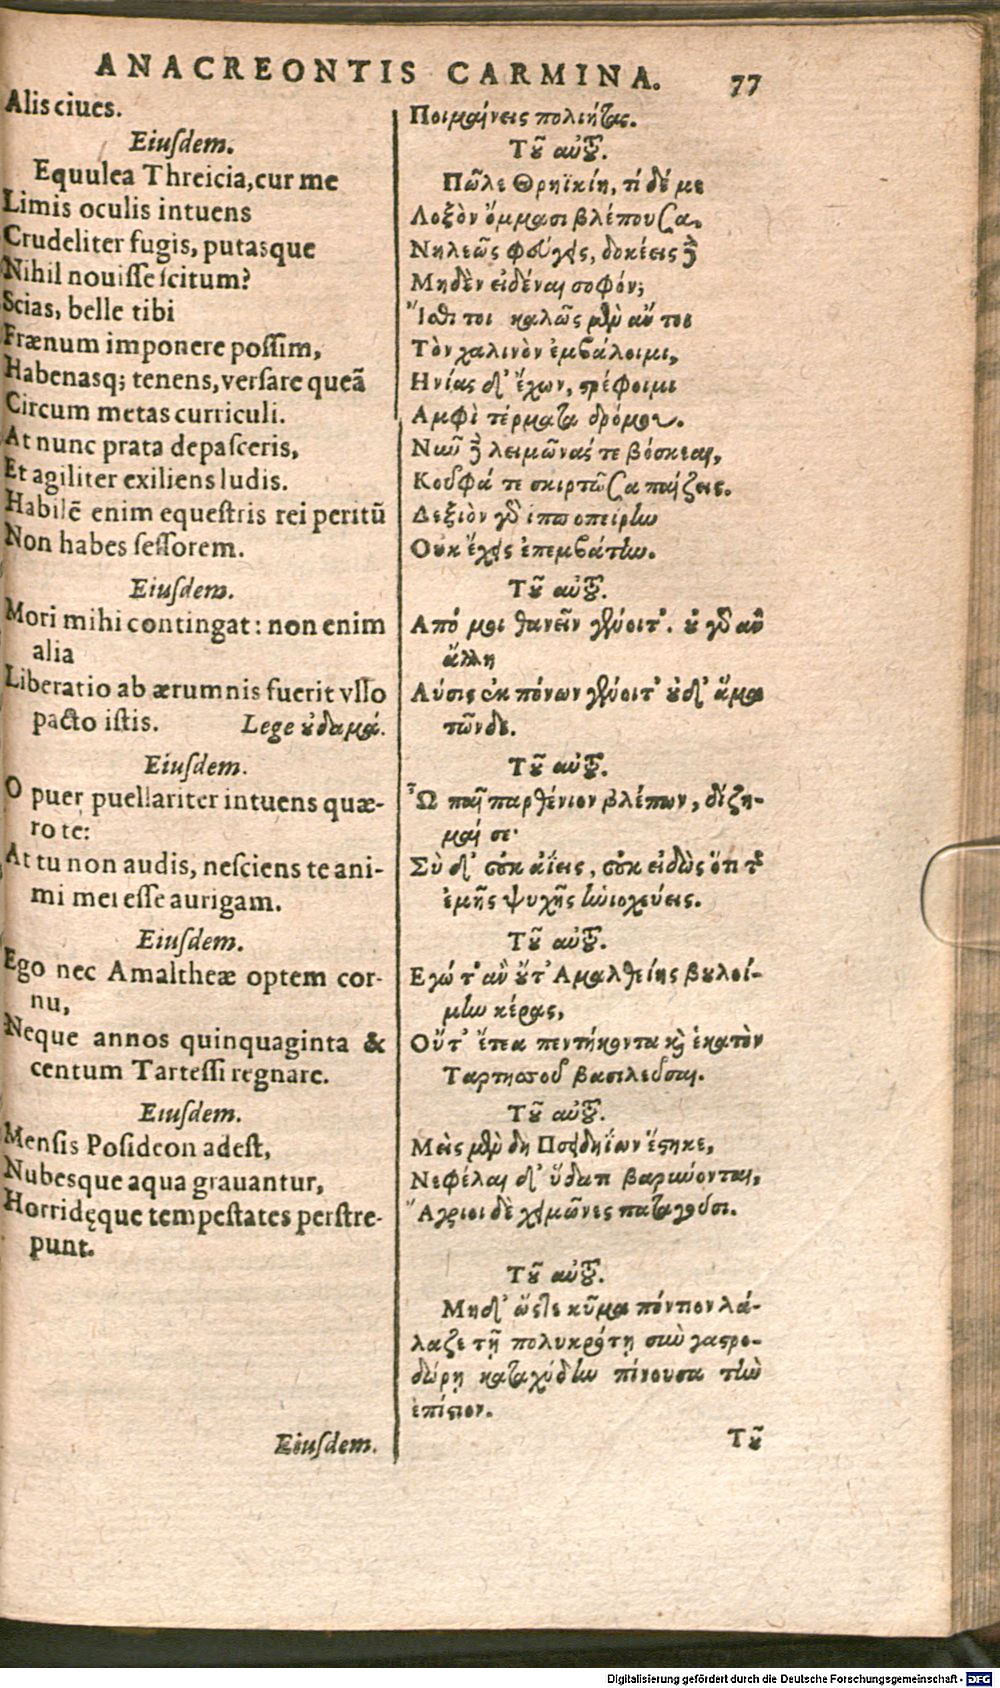 ANACREONTIS CARMINA. 77
Alis ciues.
Eiuſdem.
Equulea Threicia, cur me
Limis oculis intuens
Crudeliter fugis, putasque
Nihil nouiſſe ſcitum?
Scias, belle tibi
Frænum imponere poſſim,
Habenasq; tenens, verſare queã
Circum metas curriculi.
At nunc prata depaſceris,
Et agiliter exiliens ludis.
Habilẽ enim equeſtris rei peritũ
Non habes ſeſſorem.
Eiuſdem.
Mori mihi contingat: non enim
alia
Liberatio ab ærumnis fuerit vllo
pacto iſtis. Lege ȣ̓δαμά.
Eiuſdem.
O puer puellariter intuens quæ-
ro te:
At tu non audis, neſciens te ani-
mi mei eſſe aurigam.
Eiuſdem.
Ego nec Amaltheæ optem cor-
nu,
Neque annos quinquaginta &
centum Tarteſſi regnare.
Eiuſdem.
Menſis Poſideon adeſt,
Nubesque aqua grauantur,
Horridęque tempeſtates perſtre-
punt.
Eiuſdem.
Ποιμαίνεις πολιήτας.
Τȣ͂ αὐτȣ͂.
Πῶλε Θρηϊκίη, τί δέ με
Λοξὸν ὄμμασι βλέπουσα,
Νηλεῶς φεύγεις, δοκέεις δὲ
Μηδὲν εἰδέναι σοφόν;
Ἴσθι τοι καλῶς μὲν ἄν τοι
Τὸν χαλινὸν ἐμβάλοιμι,
Ηνίας δ' ἔχων, στρέφοιμι
Αμφὶ τέρματα δρόμου.
Νῦν δὲ λειμῶνάς τε βόσκεαι,
Κοῦφά τε σκιρτῶσα παίζεις.
Δεξιὸν γὰρ ἱπποπείρην
Ουκ ἔχεις ἐπεμβάτην.
Τȣ͂ αὐτȣ͂.
Από μοι θανεῖν γένοιτ'. ȣ̓ γὰρ ἂν
ἄλλη
Λύσις ἐκ πόνων γένοιτ' ȣ̓δ' ἄμα
τῶνδε.
Τȣ͂ αὐτȣ͂.
Ὦ παῖ παρθένιον βλέπων, δίζη-
μαί σε·
Σὺ δ' οὐκ ἀΐεις, οὐκ εἰδὼς ὅτι τῆς
ἐμῆς ψυχῆς ἡνιοχεύεις.
Τȣ͂ αὐτȣ͂.
Εγώ τ' ἂν ȣ̓́τ' Αμαλθείης βȣλοί-
μην κέρας,
Οὔτ' ἔτεα πεντήκοντα καὶ ἑκατὸν
Ταρτησσοῦ βασιλεῦσαι.
Τȣ͂ αὐτȣ͂.
Μεὶς μὲν δὴ Ποσειδηΐων ἕστηκε,
Νεφέλαι δ' ὕδατι βαρύνονται,
Ἄγριοι δὲ χειμῶνες παταγοῦσι.
Τȣ͂ αὐτȣ͂.
Μηδ' ὥστε κῦμα πόντιον λά-
λαζε τῇ πολυκρότῃ σὺν γαστρο-
δώρῃ καταχύδην πίνουσα τὴν
ἐπίστιον.
Τȣ͂
Digitalisierung gefördert durch die Deutsche Forschungsgemeinschaft - DFG